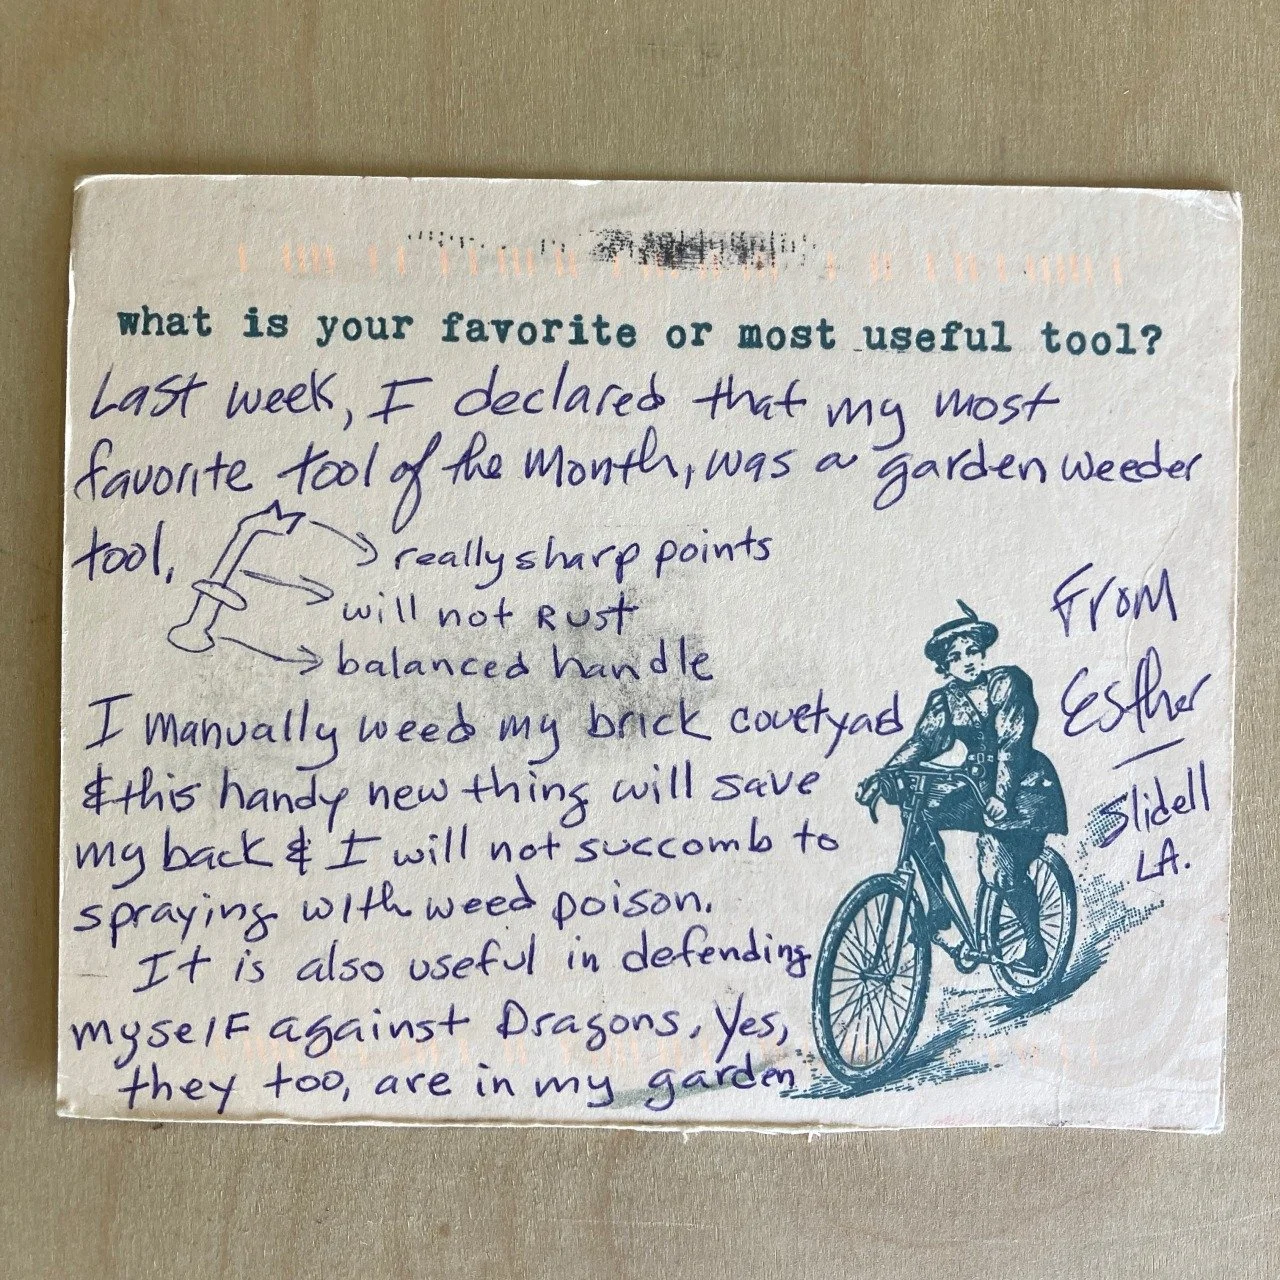 what is your favorite or most useful tool?
Last week, I declared that my most
favorite tool of the Month, was a garden weeder
tool,
really sharp points
will not Rust
balanced handle
I manually weed my brick couetyard
& this handy new thing will save
my back & I will not succomb to
spraying with weed poison.
It is also useful in defending
myself against Dragons, Yes,
they too, are in my garden
From
Esther
Slidell
LA.